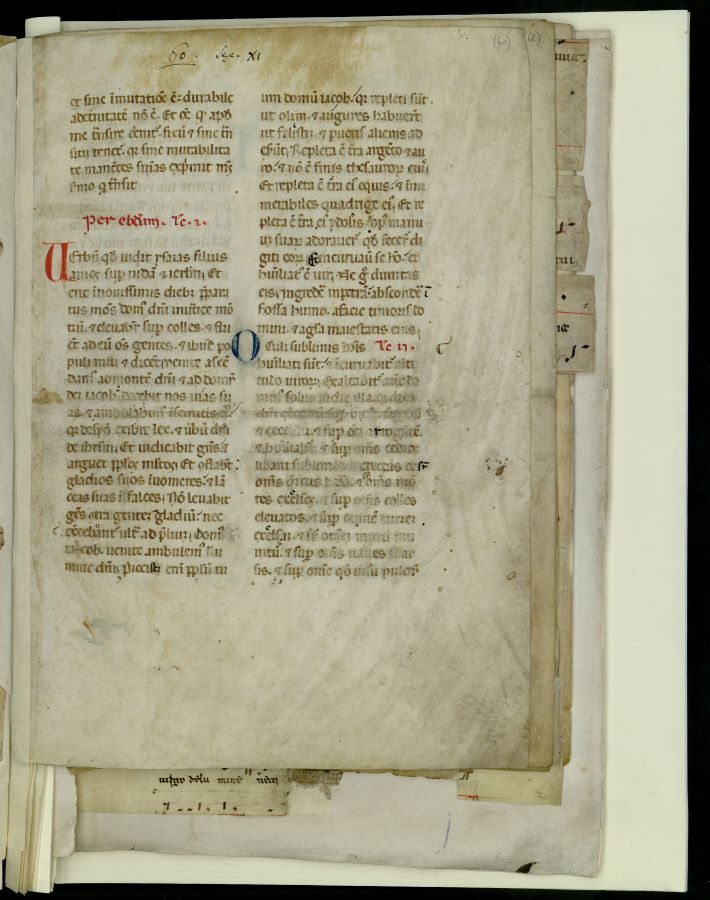 60. Sec. XI
(60)
et sine īmutatiōē ē: durabile
adeternitatē nō ē. Et cē q̇ apd̄
sitū tenet. q̇ sine mutabilita
te manētes
Per ebdm̄. Lc. i.
Uerbū qd̄ vidit ysaias filius
amos sup iudā & ierlm̄; Et
erit inovissimis dieb; p̄para
tus mōs dom' dn̄i īvertice mō
tiū. & elevabit' sup colles. & flu
ēt ad eū oēs gentes. & ibūt po
puli multi & dicēt; venite ascē
dam' admontē dn̄i & ad domū
dei iacob. & docebit nos vias su
as. & ambulabim' īsemitis ei'
q̇ desyō exibit lex. & v̄bū dn̄i
de ihrlm̄; Et iudicabit gn̄s. &
arguet pp̄los mltos; Et cōflabt̄
gladios suos īvomeres. & lā
ceas suas ī falces; Nō levabit
gēs cōtra gentē gladiū. nec
excebūnt' ult̄ ad p̄liū; Dom'
iacob. venite ambulem' ī lu
mine dn̄i; Piecisti enī pplm̄ tu
um domū iacob. q̇ repleti sūt
ut olim. & augures habuerūt
ut filistiī. & pueris alienis ad
eserūt; Repleta ē t̄ra argēto & au
ro. & nō ē finis thesauror̄ ei';
Et repleta ē t̄ra ei' equis. & inu
merabiles quadrige ei'. Et re
pleta ē t̄ra ei' ydolis. op' manu
ū suar̄ adoraver̄ qd̄ fecer̄ di
giti eor̄. Et incurvavit se hō. et
humiliat' ē vir; Ne ḡ dimittas
eis; ingrede inpetrā. abscondē ī
fossa humo. afacie timoris do
mini. & agl̄a maiestatis eius;
Oculi sublimis hōis Lc. ii.
humiliati sūt. & īcurvabit' alti
tudo viror̄; Exaltabit' autē do
min' solus īndie illa
& excelsū. & sup oēm arrogātē.
& humiliabit'. & sup omēs cedros
libani sublimes & erectas & sr̄
omēs quercus basan. & sr̄ omēs mō
tes excelsos. & sup omēs colles
elevatos. & sup omnē turrē
excelsā. & sr̄ omnē murū mu
nitū. & sup omēs naves thar
sis. & sup omē qd̄ visu pulcrū